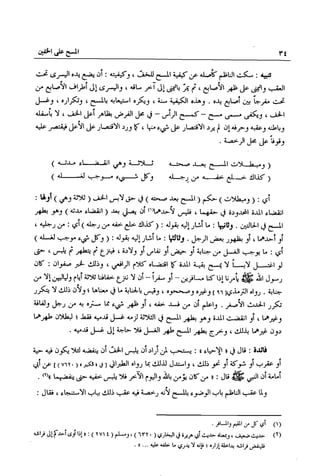 ٣٤ المسح على الخفين
تنبيه : سكت الناظم كأصله عن كيفية المسح للخف ، وكيفيته : أن يضع يده اليسرى تحت
العقب واليمنى على ظهر الأصابع ، ثم يمر باليمنى إلى آخر ساقه ، واليسرى إلى أطراف الأصابع من
تحت مفرجاً بين أصابع يده . وهذه الكيفية سنة ، ويكره استيعابه بالمسح ، وتكراره ، وغسل
الخف ، ويكفي مسمى مسح - كمسح الرأس - في محل الفرض بظاهر أعلى الخف ، لا بأسفله
وباطنه وعقبه وحرفه إن لم يرد الاقتصار على شيء منها ، كما ورد الاقتصار على الأعلى فيقتصر عليه
وقوفاً على محل الرخصة .
( ومبطلات المسح بعد صحته ثلاثة وهي انقضاء مدته )
( كذاك خلع خفه من رجله وكل شيء موجب لغسله )
أي : ( ومبطلات ) حكم ( المسح بعد صحته ) في حق لابس الخف ( ثلاثة وهي ) أولها :
انقضاء المدة المحدودة في حقهما ، فليس لأحدهما (١) أن يصلي بعد ( انقضاء مدته ) وهو بطهر
المسح في الحالتين . وثانيها : ما أشار إليه بقوله : ( كذاك خلع خفه من رجله ) أي : من رجليه ،
أو أحدهما ، أو بظهور بعض الرجل . وثالثها : ما أشار إليه بقوله : ( وكل شيء موجب لغسله )
أي : ما يوجب الغسل من جنابة أو حيض أو نفاس أو ولادة ، فينزع ثم يتطهر ثم يلبس ، حتى
لو اغتسل لابساً لا يمسح بقية المدة كما اقتضاه كلام الرافعي ، وذلك لخبر صفوان : كان
رسول الله ﷺ يأمرنا إذا كنا مسافرين - أو سفراً - أن لا ننزع خفافنا ثلاثة أيام ولياليهن إلا من
جنابة . رواه الترمذي (٩٦) وغيره وصححوه ، وقيس بالجنابة ما في معناها ؛ ولأن ذلك لا يتكرر
تكرر الحدث الأصغر . واعلم أن من فسد خفه ، أو ظهر شيء مما ستر به من رجل ولفافة
وغيرهما ، أو انقضت المدة وهو بطهر المسح في الثلاثة لزمه غسل قدميه فقط ؛ لبطلان طهرهما
دون غيرهما بذلك ، وخرج بطهر المسح طهر الغسل فلا حاجة إلى غسل قدميه .
فائدة : قال في « الإحياء » : يستحب لمن أراد أن يلبس الخف أن ينفضه لئلا يكون فيه حية
أو عقرب أو شوكة أو نحو ذلك ، واستدل لذلك بما رواه الطبراني ( في « الكبير » (٧٦٢٠)) عن أبي
أمامة أن النبي ﷺ قال : « من كان يؤمن بالله واليوم الآخر فلا يلبس خفيه حتى ينفضهما » (٢) .
ولما عقب الناظم باب الوضوء بالمسح لأنه رخصة فيه عقب ذلك بباب الاستنجاء ، فقال :
(١) أي كل من المقيم والمسافر .
(٢) حديث ضعيف ، وبمعناه حديث أبي هريرة في البخاري (٦٣٢٠) ، ومسلم (٢٧١٤) : « إذا أوى أحدكم إلى فراشه
فلينفض فراشه بداخلة إزاره ؛ فإنه لا يدري ما خلفه عليه ... » .